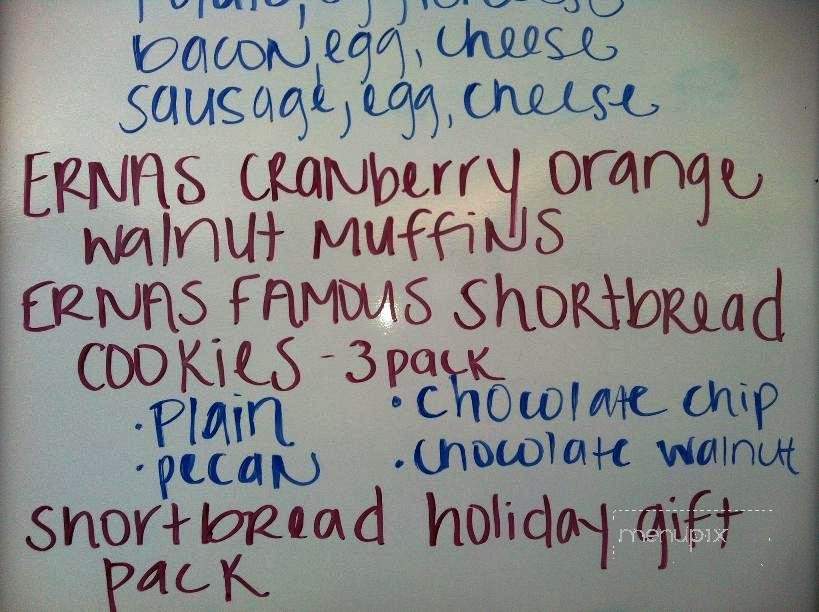 potato, egg, cheese
bacon, egg, cheese
sausage, egg, cheese
ERNAS CRANberry orange
walnut MuffiNS
ERNAS FAMOUS ShORtbRead
COOKieS - 3 pack
• Plain • chocolate chip
• pecan • chocolate walnut
shortbRead holiday gift
pack
menupix